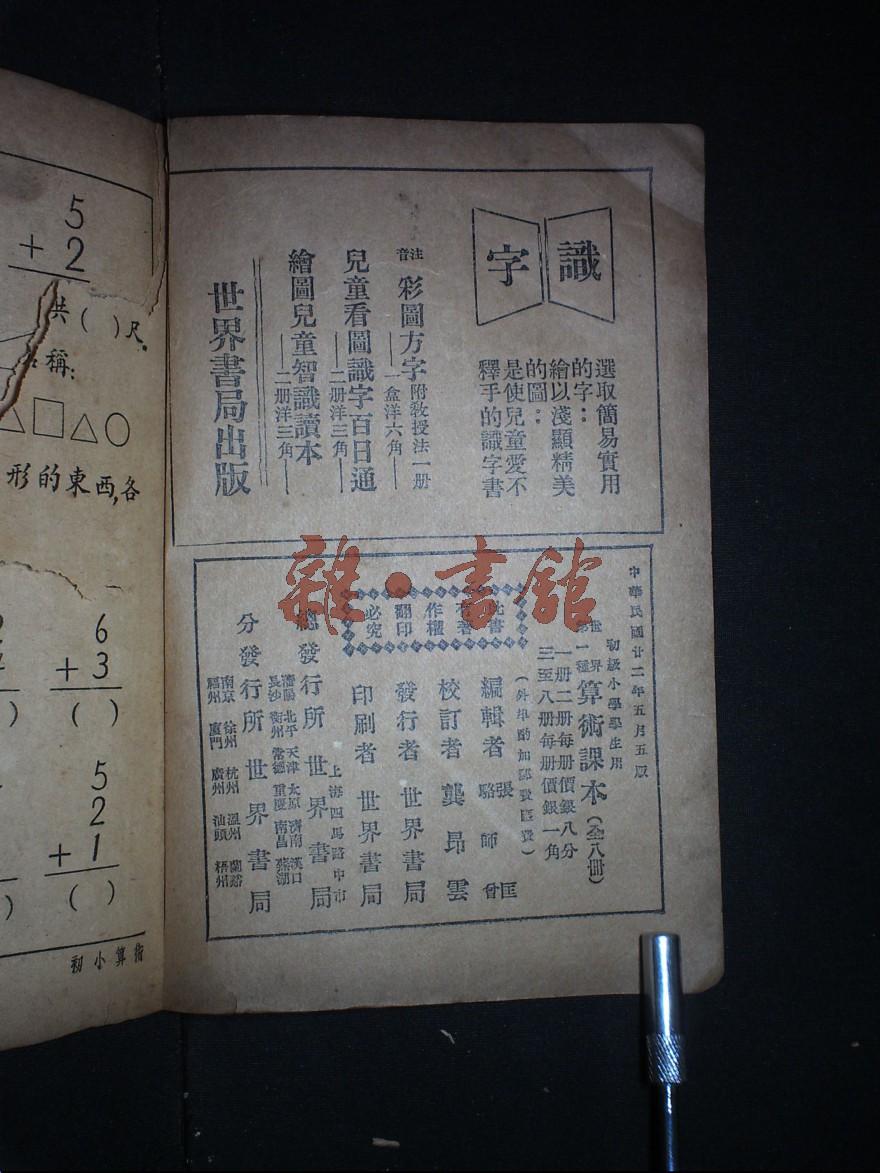 識字
選取簡易實用
的字：
繪以淺顯精美
的圖：
是使兒童愛不
釋手的識字書
注音 彩圖方字 附教授法一册 一盒洋六角
兒童看圖識字百日通 二册洋三角
繪圖兒童智識讀本 二册洋三角
世界書局出版
中華民國廿二年五月五版
初級小學學生用
世界第一種 算術課本（全八冊）
一册二册每册價銀八分
三至八册每册價銀一角
（外埠酌加郵費匯費）
此書有著作權翻印必究
編輯者 張匡 駱師曾
校訂者 龔昂雲
發行者 世界書局
印刷者 世界書局
上海四馬路中市
總發行所 世界書局
瀋陽 北平 天津 太原 濟南 漢口
長沙 衡州 常德 重慶 南昌 蕪湖
分發行所 世界書局
南京 徐州 杭州 溫州 蘭谿
福州 廈門 廣州 汕頭 梧州
5
+ 2
共( )尺。
稱:
形的東西,各
6
+ 3
( )
5
2
+ 1
( )
初小算術
雜·書館